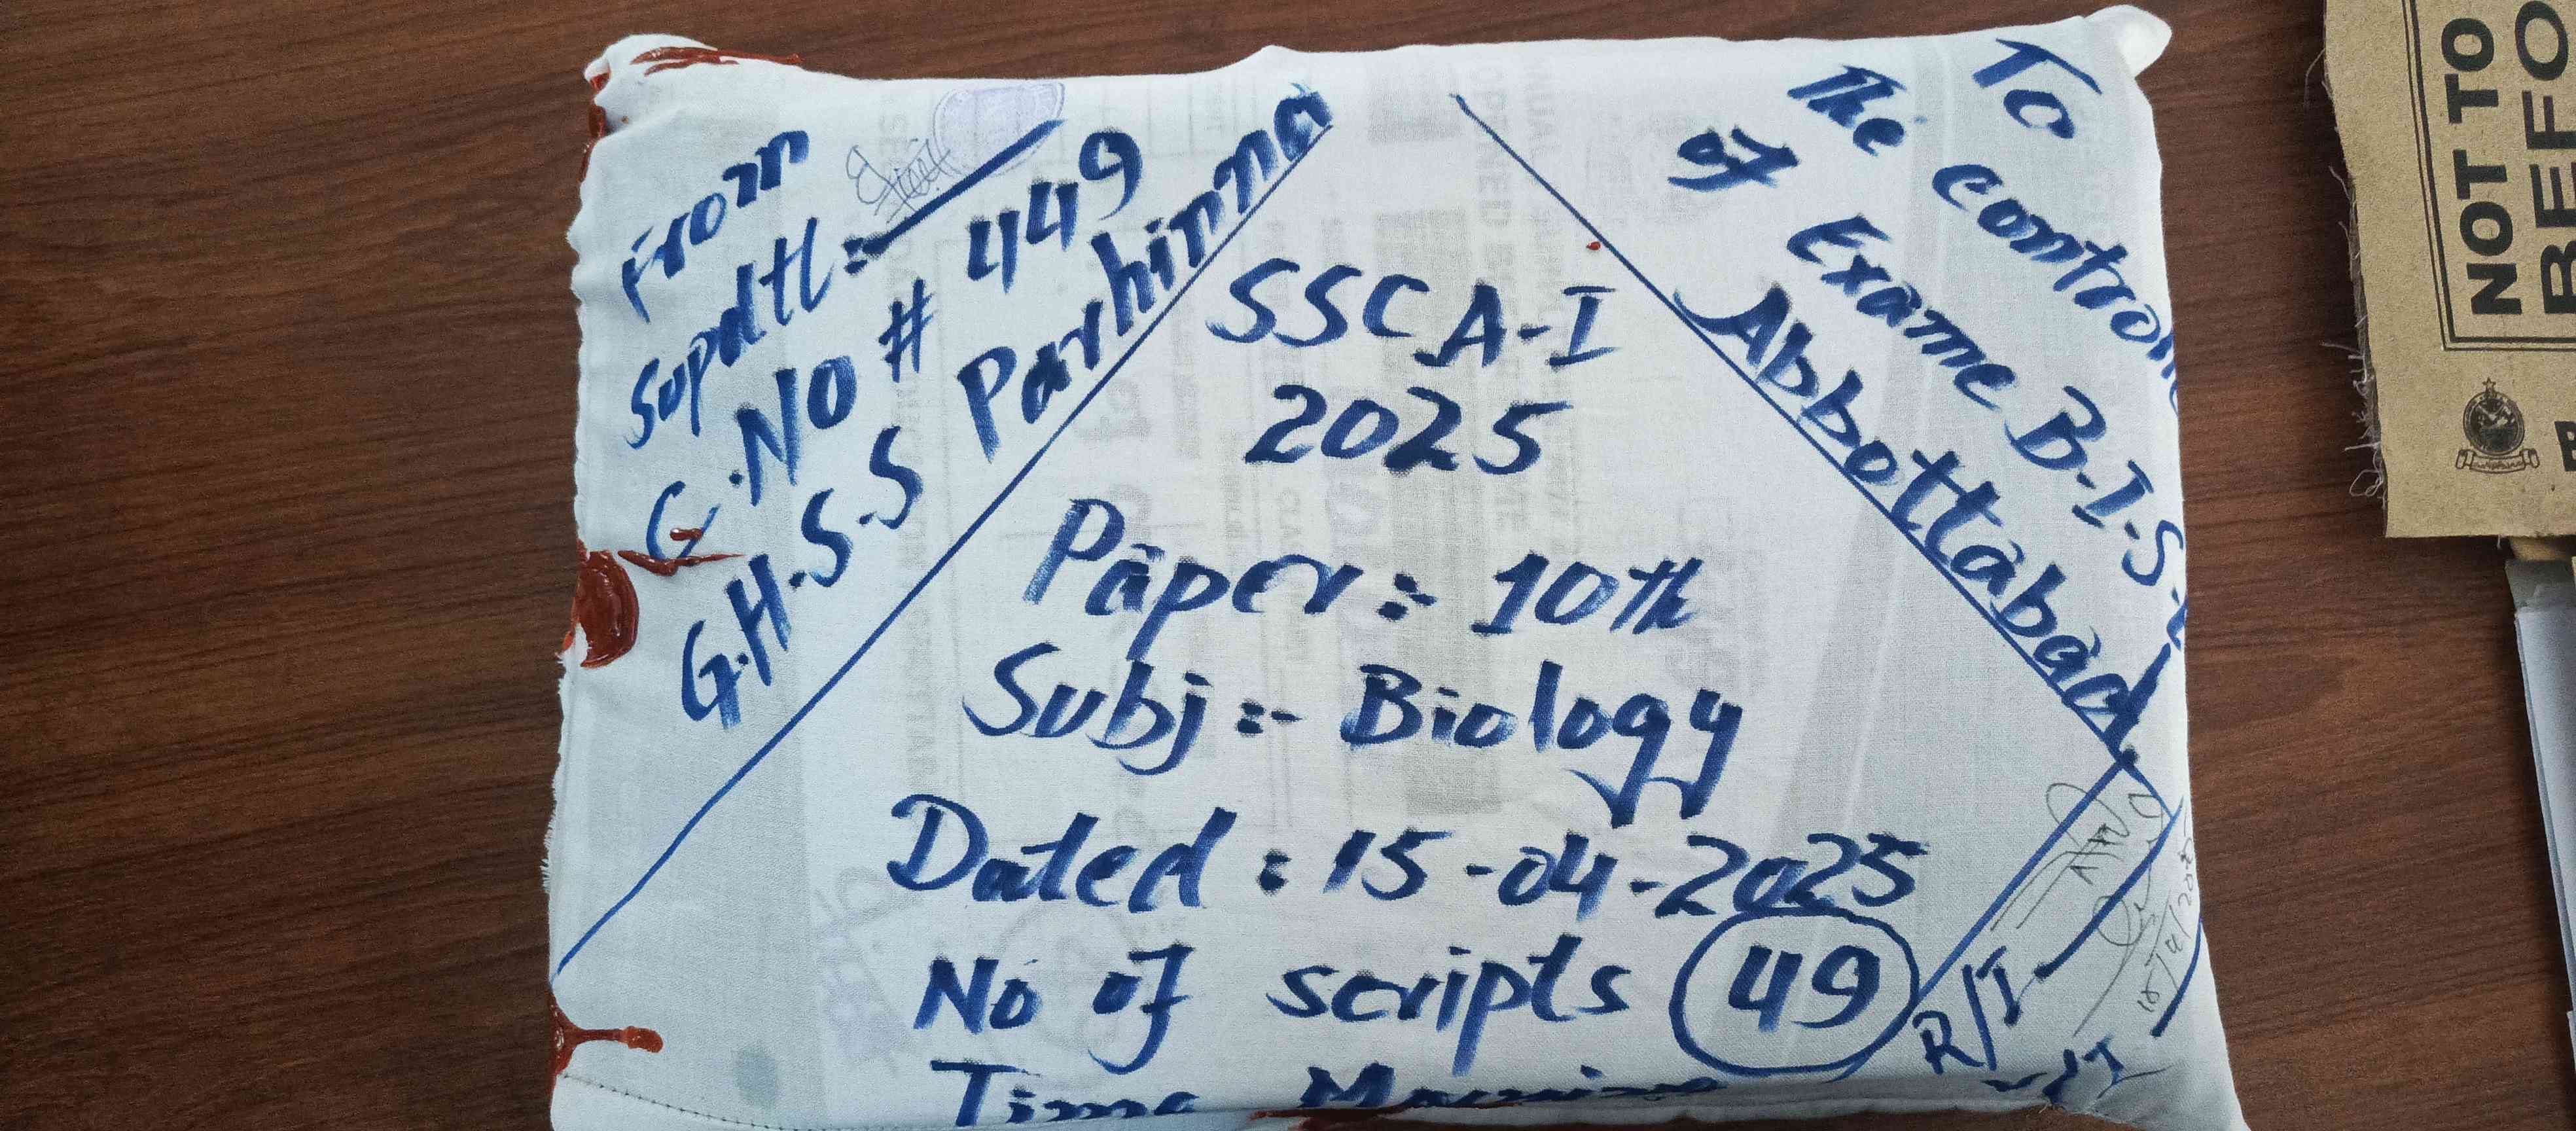 From
Supdtl :-
C.No # 449
G.H.S.S Parhinna
To
The Controlle
of Exame B.I.S.E
Abbottabad
SSC A-I
2025
Paper :- 10th
Subj :- Biology
Dated : 15-04-2025
No of scripts 49
Time Morning
R/I
15/4/2025
NOT TO
BEFO